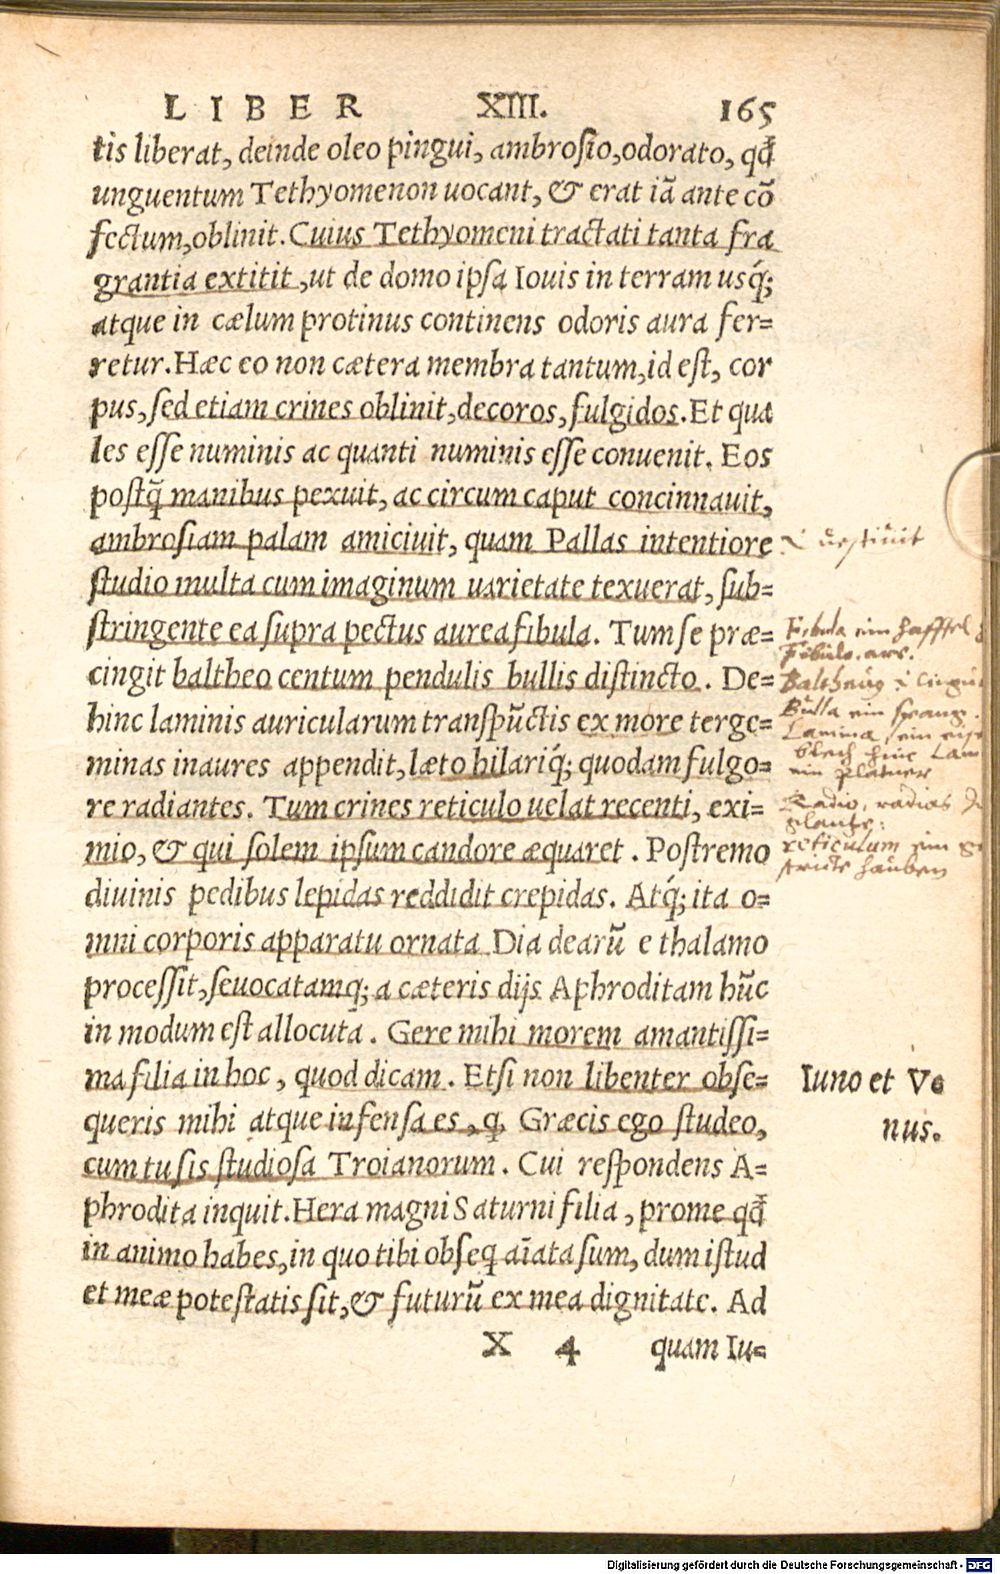 LIBER XIII. 165
tis liberat, deinde oleo pingui, ambrosio, odorato, qđ
unguentum Tethyomenon uocant, & erat iā ante cō
fectum, oblinit. Cuius Tethyomeni tractati tanta fra
grantia extitit, ut de domo ipsa Iouis in terram usq́;
atque in cælum protinus continens odoris aura fer=
retur. Hæc eo non cætera membra tantum, id est, cor
pus, sed etiam crines oblinit, decoros, fulgidos. Et qua
les esse numinis ac quanti numinis esse conuenit. Eos
postq̃ manibus pexuit, ac circum caput concinnauit,
ambrosiam palam amiciuit, quam Pallas intentiore
uestiuit
studio multa cum imaginum uarietate texuerat, sub=
stringente ea supra pectus aurea fibula. Tum se præ=
Fibula ein hafftel
Fibulo. ars.
cingit baltheo centum pendulis bullis distincto. De=
Baltheus
hinc laminis auricularum transpūctis ex more terge=
Bulla ein spang.
Lamina, ein
blech hinc
minas inaures appendit, læto hilariq́; quodam fulgo=
ein platner
re radiantes. Tum crines reticulo uelat recenti, exi=
Radio, radias
mio, & qui solem ipsum candore æquaret. Postremo
reticulum ein
hauben
diuinis pedibus lepidas reddidit crepidas. Atq́; ita o=
mni corporis apparatu ornata Dia dearū e thalamo
processit, seuocatamq; a cæteris dijs Aphroditam hūc
in modum est allocuta. Gere mihi morem amantissi=
ma filia in hoc, quod dicam. Etsi non libenter obse=
Iuno et Ve
queris mihi atque infensa es, q, Græcis ego studeo,
nus.
cum tu sis studiosa Troianorum. Cui respondens A=
phrodita inquit. Hera magni Saturni filia, prome qđ
in animo habes, in quo tibi obseq aīata sum, dum istud
et meæ potestatis sit, & futurū ex mea dignitate. Ad
X 4 quam Iu=
Digitalisierung gefördert durch die Deutsche Forschungsgemeinschaft - DFG